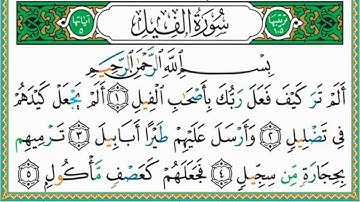 ترتيبها ١٠٥ سورة الفيل آياتها ٥
بِسْمِ اللَّهِ الرَّحْمَٰنِ الرَّحِيمِ
أَلَمْ تَرَ كَيْفَ فَعَلَ رَبُّكَ بِأَصْحَابِ الْفِيلِ ١ أَلَمْ يَجْعَلْ كَيْدَهُمْ
فِي تَضْلِيلٍ ٢ وَأَرْسَلَ عَلَيْهِمْ طَيْرًا أَبَابِيلَ ٣ تَرْمِيهِمْ
بِحِجَارَةٍ مِّن سِجِّيلٍ ٤ فَجَعَلَهُمْ كَعَصْفٍ مَّأْكُولٍ ٥